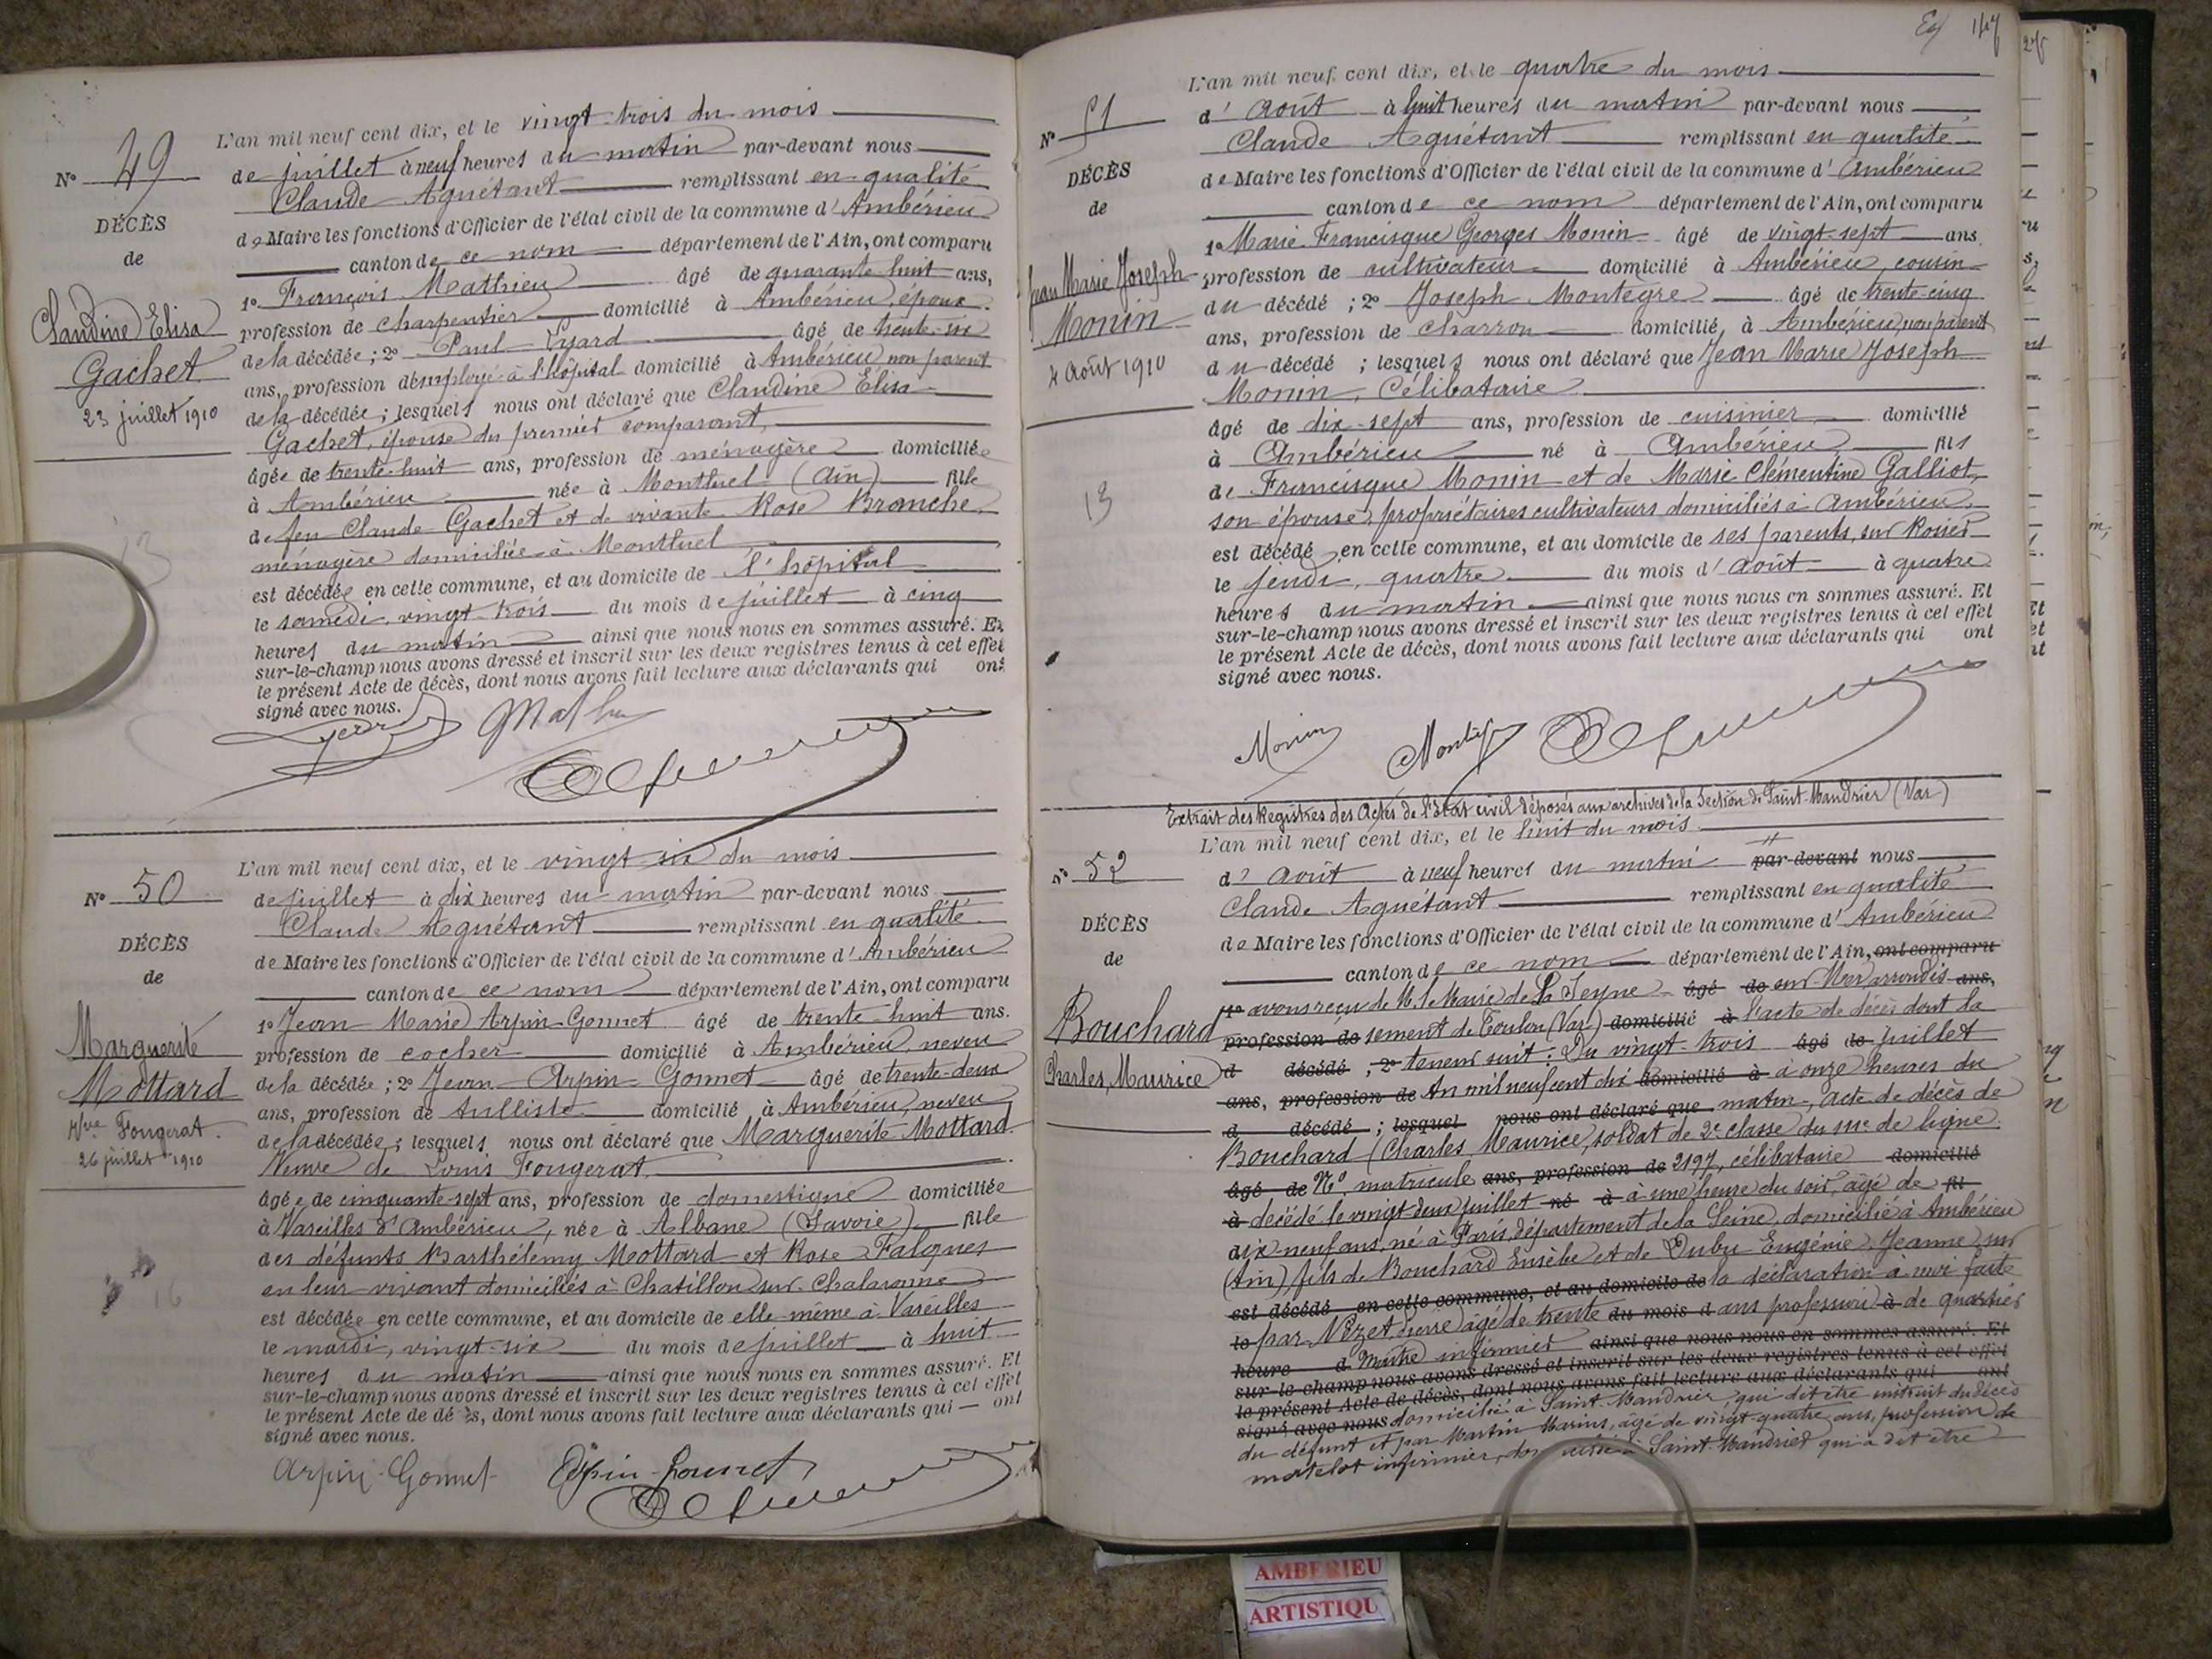 L'an mil neuf cent dix, et le vingt-trois du mois
No 49
de juillet à neuf heures du matin par-devant nous
Claude Aguétant remplissant en qualité
DÉCÈS
de Maire les fonctions d'Officier de l'état civil de la commune d'Ambérieu
de
canton de ce nom département de l'Ain, ont comparu
1o François Mathieu âgé de quarante-huit ans,
Claudine Elisa
profession de charpentier domicilié à Ambérieu, époux
Gachet
de la décédée; 2o Paul âgé de trente-six
23 juillet 1910
ans, profession d'employé à l'hôpital domicilié à Ambérieu non parent
de la décédée; lesquels nous ont déclaré que Claudine Élisa
Gachet, épouse du premier comparant,
âgée de trente-huit ans, profession de ménagère domiciliée
à Ambérieu née à Montluel (Ain) fille
de feu Claude Gachet et de vivante Rose Branche,
ménagère domiciliée à Montluel
est décédée en cette commune, et au domicile de l'hôpital
le samedi, vingt-trois du mois de juillet à cinq
heures du matin ainsi que nous nous en sommes assuré. Et
sur-le-champ nous avons dressé et inscrit sur les deux registres tenus à cet effet
le présent Acte de décès, dont nous avons fait lecture aux déclarants qui ont
signé avec nous.
13
L'an mil neuf cent dix, et le vingt-six du mois
No 50
de juillet à dix heures du matin par-devant nous
Claude Aguétant remplissant en qualité
DÉCÈS
de Maire les fonctions d'Officier de l'état civil de la commune d'Ambérieu
de
canton de ce nom département de l'Ain, ont comparu
1o Jean Marie Arpin-Gonnet âgé de trente-huit ans.
Marguerite
profession de cocher domicilié à Ambérieu, neveu
Mottard
de la décédée; 2o Jean Arpin-Gonnet âgé de trente-deux
Vve Fougerat.
ans, profession de tulliste domicilié à Ambérieu, neveu
26 juillet 1910
de la décédée; lesquels nous ont déclaré que Marguerite Mottard
Veuve de Louis Fougerat
âgée de cinquante-sept ans, profession de domestique domiciliée
à Vareilles d'Ambérieu, née à Albane (Savoie) fille
des défunts Barthélemy Mottard et Rose
en leur vivant domiciliés à Chatillon sur Chalaronne
est décédée en cette commune, et au domicile de elle-même à Vareilles
le mardi, vingt-six du mois de juillet à huit
heures du matin ainsi que nous nous en sommes assuré. Et
sur-le-champ nous avons dressé et inscrit sur les deux registres tenus à cet effet
le présent Acte de décès, dont nous avons fait lecture aux déclarants qui ont
signé avec nous.
16
Arpin-Gonnet Arpin-Gonnet
147
L'an mil neuf cent dix, et le quatre du mois
No 51
d'août à huit heures du matin par-devant nous
Claude Aguétant remplissant en qualité
DÉCÈS
de Maire les fonctions d'Officier de l'état civil de la commune d'Ambérieu
de
canton de ce nom département de l'Ain, ont comparu
1o Marie Francisque Georges Monin âgé de vingt-sept ans,
Jean Marie Joseph
profession de cultivateur domicilié à Ambérieu, cousin
Monin
du décédé; 2o Joseph Montègre âgé de trente-cinq
4 Août 1910
ans, profession de charron domicilié à Ambérieu, non parent
du décédé; lesquels nous ont déclaré que Jean Marie Joseph
Monin, Célibataire
âgé de dix-sept ans, profession de cuisinier domicilié
à Ambérieu né à Ambérieu fils
de Francisque Monin et de Marie Clémentine Galliot,
13
son épouse, propriétaires cultivateurs domiciliés à Ambérieu,
est décédé en cette commune, et au domicile de ses parents,
le jeudi, quatre du mois d'août à quatre
heures du matin ainsi que nous nous en sommes assuré. Et
sur-le-champ nous avons dressé et inscrit sur les deux registres tenus à cet effet
le présent Acte de décès, dont nous avons fait lecture aux déclarants qui ont
signé avec nous.
Monin
Extrait des Registres des Actes de l'État civil déposés aux archives de la Section de Saint-Mandrier (Var)
L'an mil neuf cent dix, et le huit du mois
No 52
d'août à neuf heures du matin par-devant nous
Claude Aguétant remplissant en qualité
DÉCÈS
de Maire les fonctions d'Officier de l'état civil de la commune d'Ambérieu
de
canton de ce nom département de l'Ain, ont comparu
1o avons reçu de M. le Maire de La Seyne âgé de arrondis ans,
Bouchard
profession de sement de Toulon (Var) domicilié à l'acte de décès dont la
Charles, Maurice
d décédé; 2o teneur suit: Du vingt-trois âgé de juillet
ans, profession de An mil neuf cent dix domicilié à à onze heures du
d décédé; lesquel nous ont déclaré que matin, acte de décès de
Bouchard (Charles, Maurice, soldat de 2e classe du 111e de ligne.
âgé de No matricule ans, profession de 2197, célibataire domicilié
à décédé le vingt-deux juillet né à à une heure du soir, âgé de fil
dix-neuf ans, né à Paris, département de la Seine, domicilié à Ambérieu
(Ain) fils de Bouchard Eusèbe et de Dubu Eugénie, Jeanne, sur
est décédé en cette commune, et au domicile de la déclaration à moi faite
le par Vizet Pierre âgé de trente du mois d ans profession à de quartier
heure d Maître infirmier ainsi que nous nous en sommes assuré. Et
sur-le-champ nous avons dressé et inscrit sur les deux registres tenus à cet effet
le présent Acte de décès, dont nous avons fait lecture aux déclarants qui ont
signé avec nous domicilié à Saint-Mandrier, qui dit être instruit du décès
du défunt et par Martin Marius, âgé de vingt-quatre ans, profession de
matelot infirmier, à Saint-Mandrier qui a dit être
AMBERIEU
ARTISTIQU